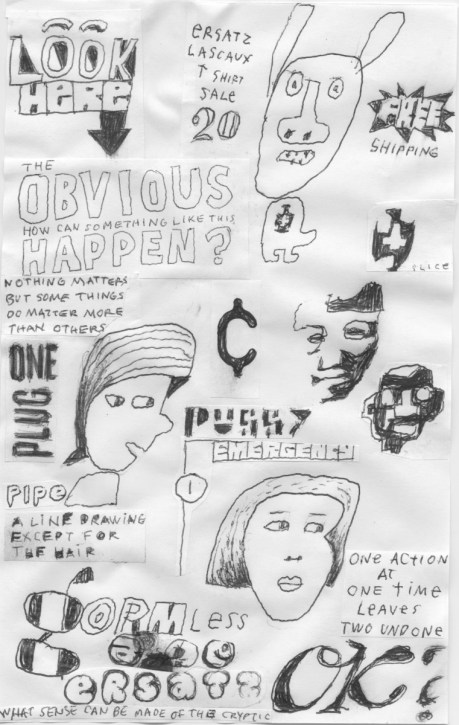 LOOK
HERE
ERSATZ
LASCAUX
T SHIRT
SALE
20
FREE
SHIPPING
THE
OBVIOUS
HOW CAN SOMETHING LIKE THIS
HAPPEN?
SLICE
NOTHING MATTERS
BUT SOME THINGS
DO MATTER MORE
THAN OTHERS
¢
ONE
PLUG
PUSSY
EMERGENCY
PIPE
A LINE DRAWING
EXCEPT FOR
THE HAIR
ONE ACTION
AT
ONE TIME
LEAVES
TWO UNDONE
GORMLESS
ERSATZ
OK?
WHAT SENSE CAN BE MADE OF THE CRYPTIC